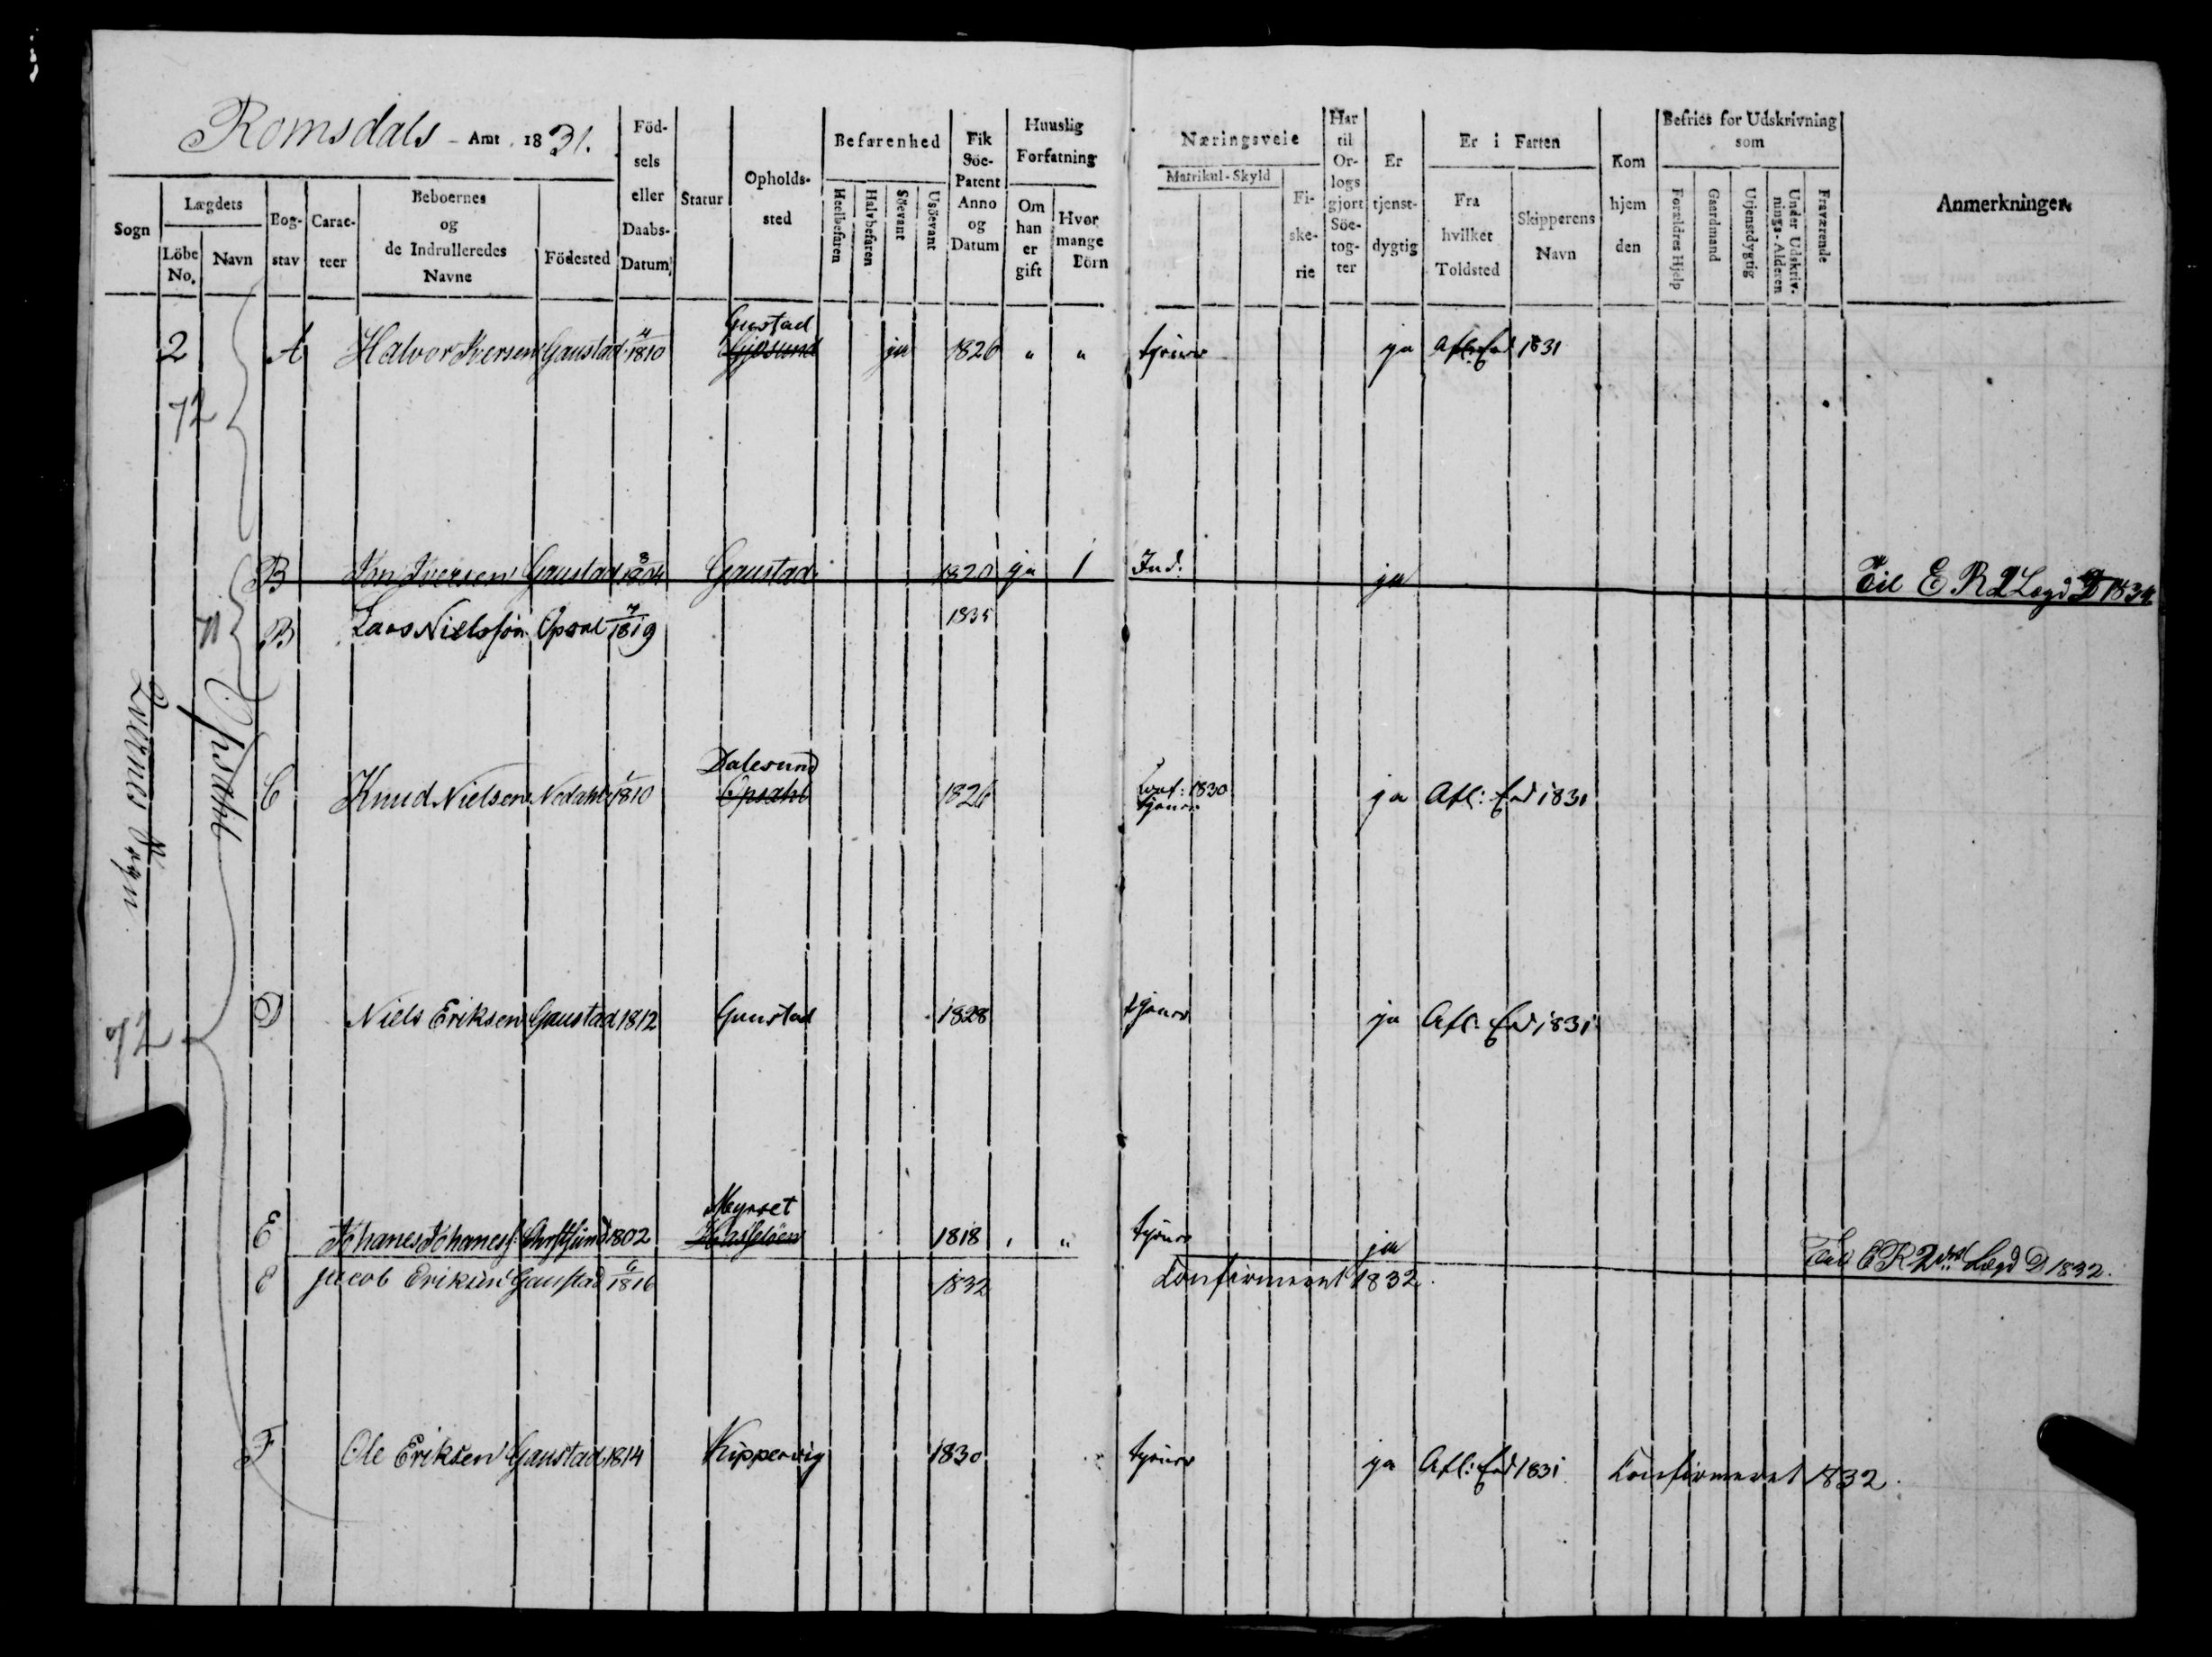 Romsdals - Amt. 1831.
Sogn
Lægdets
Löbe No.
Navn
Bog-stav
Carac-teer
Beboernes og de Indrulleredes Navne
Födested
Föd-sels eller Daabs-Datum
Statur
Opholds-sted
Befarenhed
Heelbefaren
Halvbefaren
Söevant
Usöevant
Fik Söe-Patent Anno og Datum
Huuslig Forfatning
Om han er gift
Hvor mange Börn
Næringsveie
Matrikul-Skyld
Fi-ske-rie
Har til Or-logs gjort Söe-tog-ter
Er tjenst-dygtig
Er i Farten
Fra hvilket Toldsted
Skipperens Navn
Kom hjem den
Befries for Udskrivning som
Forældres Hjelp
Gaardmand
Utjenstdygtig
Under Udskriv-nings-Alderen
Fraværende
Anmerkninger
Qvernes Sogn
Opsahl
Gustad
2 A Halvor Iversen Gaustad 4/1810 Gjøsund ja 1826 " " tjener ja Afl: Eed 1831
72
B Jon Iversen Gaustad 8/1804 Gaustad 1820 ja 1 Ind. ja Til E. R 2 Lægd D 1834
71 B Lars Nielssøn Opsal 7/1819 1835
Dalesund
C Knud Nielsen Nodahl 1/1810 Opsahl 1826 Conf: 1830 tjener ja Afl: Eed 1831
72 D Niels Eriksen Gaustad 1812 Gaustad 1828 tjener ja Afl: Eed 1831
Meyset
E Johanes Johanes: Chrstsund 1802 Hasseløen 1818 " tjener ja Till E R 2det Lægd D 1832.
E Jacob Eriksen Gaustad 6/1816 1832 Confirmeret 1832.
F Ole Eriksen Gaustad 1814 Kippervig 1830 tjener ja Afl: Eed 1831 Confirmeret 1832.